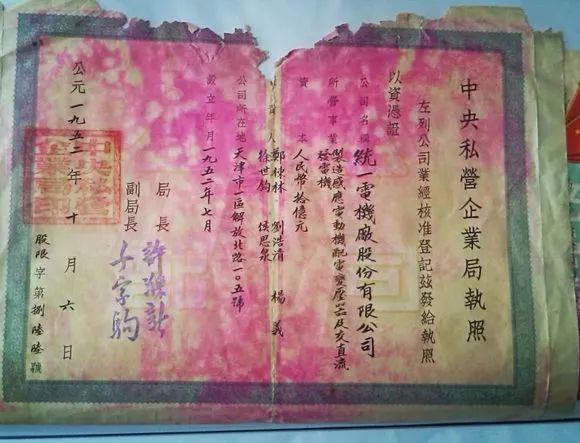 中央私營企業局執照
左列公司業經核准登記茲發給執照
以資憑證
公司名稱 統一電機廠股份有限公司
所營事業 製造感應電動機配電變壓器及交直流
發電機
資本 人民幣拾億元
鄭棟林 劉浩清 楊義
徐世鈞 侯思泉
公司所在地 天津市一區解放北路一〇五號
設立年月 一九五二年七月
局長 許滌新
副局長 千家駒
公元一九五二年十月六日
股限字第捌陸陸號